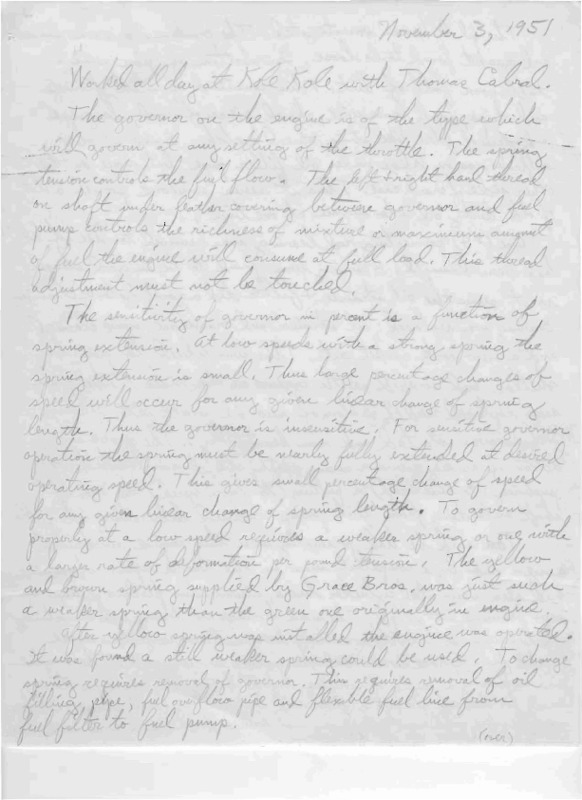 November 3, 1951
Worked all day at Kole Kole with Thomas Cabral.
The governor on the engine is of the type which
will govern at any setting of the throttle. The spring
tension controls the fuel flow. The left & right hand thread
on shaft under leather covering between governor and fuel
pump controls the richness of mixture or maximum amount
of fuel the engine will consume at full load. This thread
adjustment must not be touched.
The sensitivity of governor in percent is a function of
spring extension. At low speeds with a strong spring the
spring extension is small. Thus large percentage changes of
speed will occur for any given linear change of spring
length. Thus the governor is insensitive. For sensitive governor
operation the spring must be nearly fully extended at desired
operating speed. This gives small percentage change of speed
for any given linear change of spring length. To govern
properly at a low speed requires a weaker spring or one with
a larger rate of deformation per pound tension. The yellow
and brown spring supplied by Grace Bros. was just such
a weaker spring than the green one originally in engine.
After yellow spring was installed the engine was operated.
It was found a still weaker spring could be used. To change
spring requires removal of governor. This requires removal of oil
filling pipe, fuel overflow pipe and flexible fuel line from
fuel filter to fuel pump.
(over)